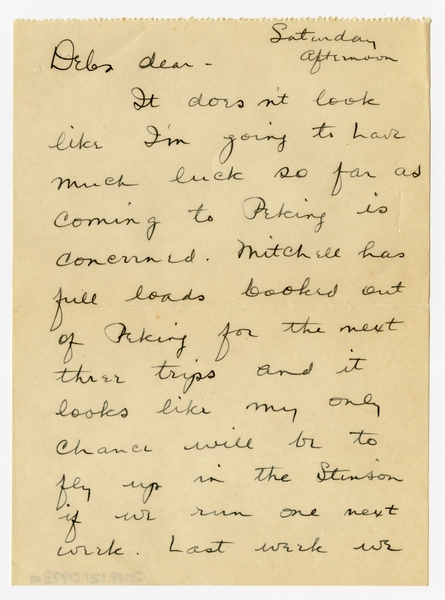 Saturday
Afternoon
Debs dear -
It doesn't look
like I'm going to have
much luck so far as
coming to Peking is
concerned. Mitchell has
full loads booked out
of Peking for the next
three trips and it
looks like my only
chance will be to
fly up in the Stinson
if we run one next
week. Last week we